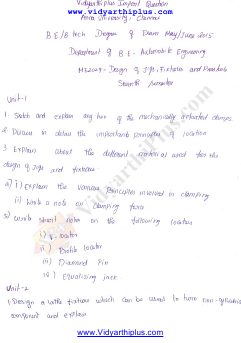 Vidyarthiplus Import Question
www.vidyarthiplus.com
Anna University, Chennai
B.E/B.Tech Degree of Exam May/June 2015
Department of B.E - Automobile Engineering
Design of Jigs, Fixtures and Press tools
Seventh Semester
Unit-1
1. Sketch and explain any two of the mechanically actuated clamps.
2. Discuss in detail the important principles of location
3. Explain about the different material used for the
design of jigs and fixtures.
4) i) Explain the various principles involved in clamping
ii) Write a note on clamping force
5) Write short note on the following locators
i) V-locator
ii) Profile locator
iii) Diamond Pin
iv) Equalizing jack.
Unit-2
1. Design a lathe fixture which can be used to turn non-cylindrical
component and explain
www.Vidyarthiplus.com